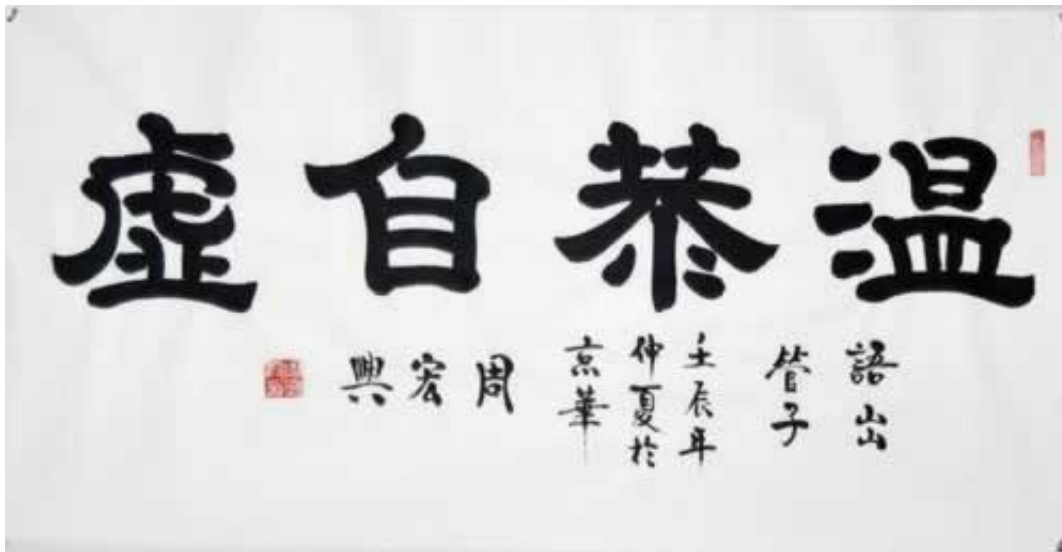 温恭自虚
語出
管子
壬辰年
仲夏於
京華
周宏興